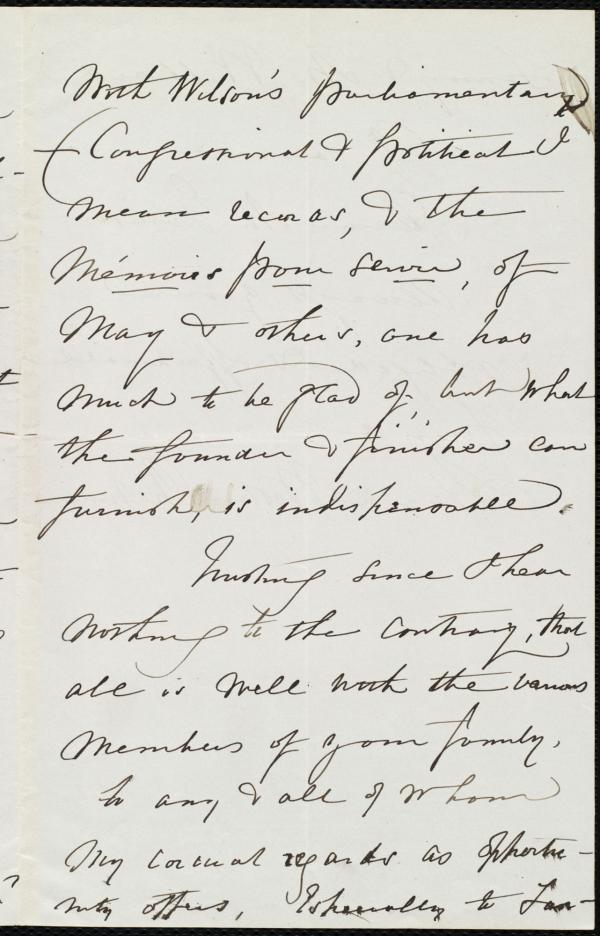 With Wilson's parliamentary
(Congressional & political I
mean records, & the
Mémoires pour servir, of
May & others, one has
much to be glad of, but what
the founder & finisher can
furnish, is indispensable.
Trusting since I hear
nothing to the contrary, that
all is well with the various
members of your family,
to any & all of whom
my cordial regards as opportu-
nity offers, Especially to Fan-